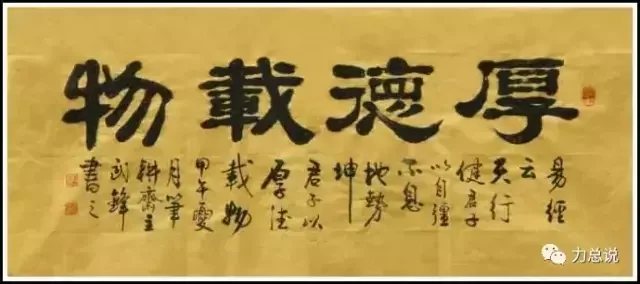 厚德載物
易經
云
天行
健君子
以自彊
不息
地勢
坤
君子以
厚德
載物
甲午夏
月筆
耕齋主
武鋒
書之
力总说